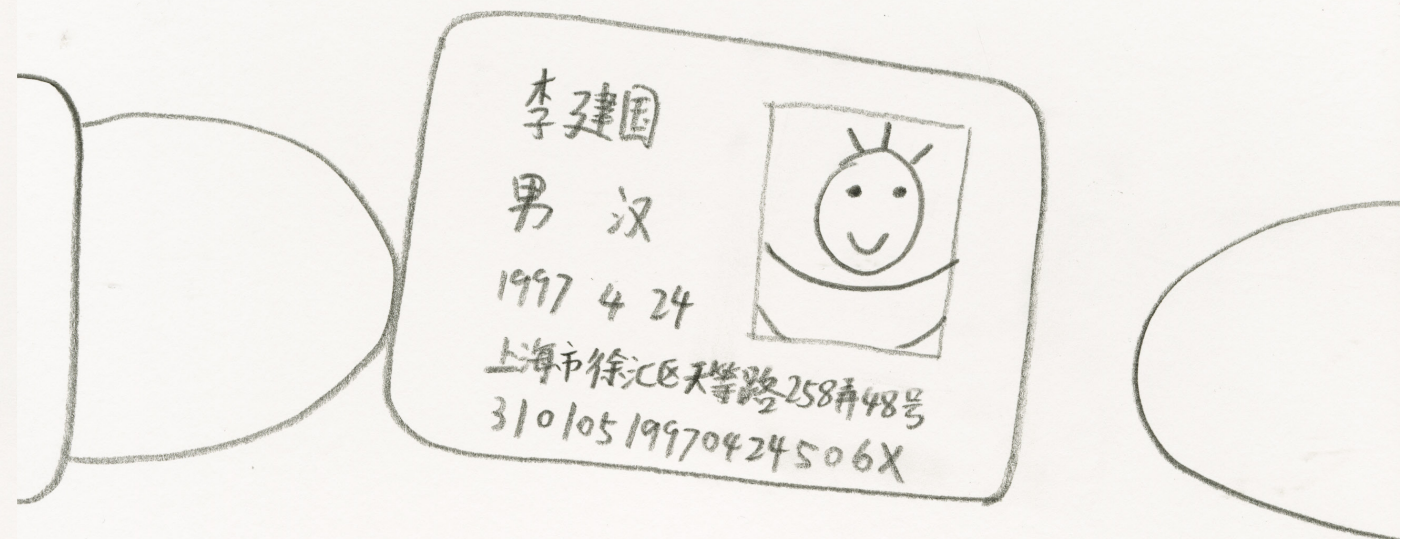 李建国
男 汉
1997 4 24
上海市徐汇区天等路258弄48号
31010519970424506X